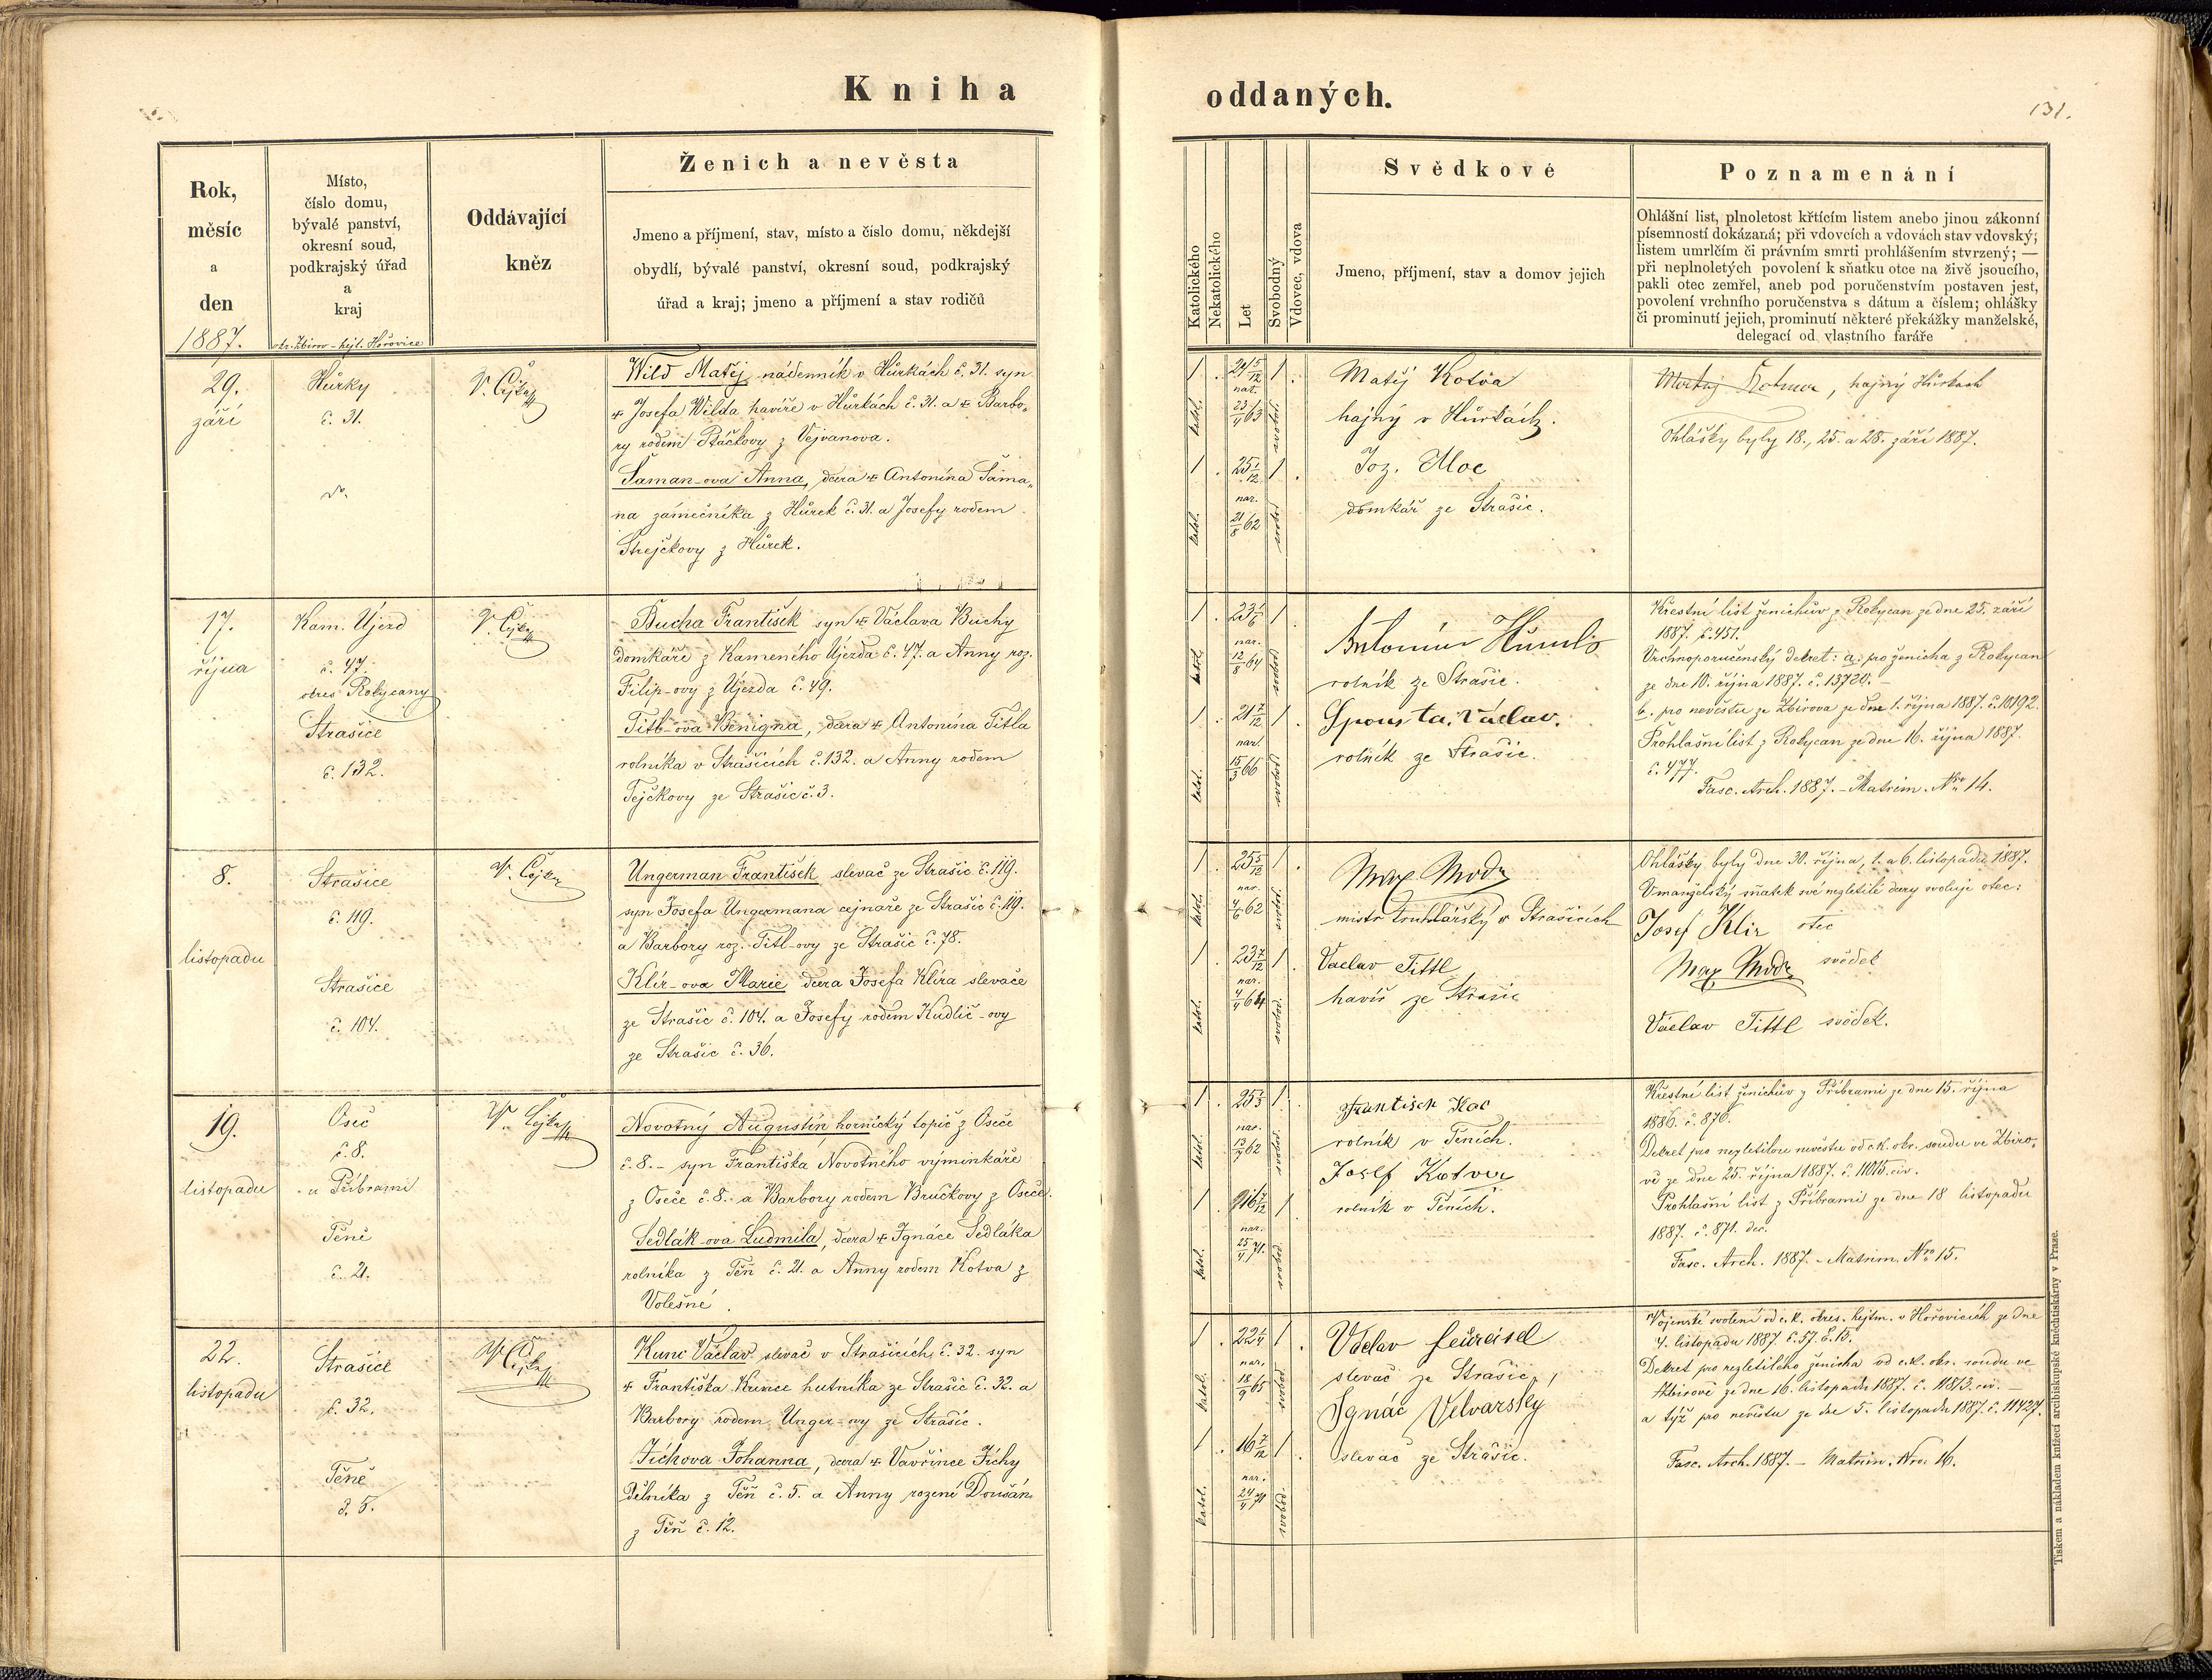 Kniha
oddaných.
131.
Rok,
měsíc
a
den
1887.
Místo,
číslo domu,
bývalé panství,
okresní soud,
podkrajský úřad
a
kraj
okr. Zbirov - hejt. Hořovice
Oddávající
kněz
Ženich a nevěsta
Jmeno a příjmení, stav, místo a číslo domu, někdejší
obydlí, bývalé panství, okresní soud, podkrajský
úřad a kraj; jmeno a příjmení a stav rodičů
Katolického
Nekatolického
Let
Svobodný
Vdovec, vdova
Svědkové
Jmeno, příjmení, stav a domov jejich
Poznamenání
Ohlášní list, plnoletost křtícím listem anebo jinou zákonní
písemností dokázaná; při vdovcích a vdovách stav vdovský;
listem umrlčím či právním smrti prohlášením stvrzený; —
při neplnoletých povolení k sňatku otce na živě jsoucího,
pakli otec zemřel, aneb pod poručenstvím postaven jest,
povolení vrchního poručenstva s dátum a číslem; ohlášky
či prominutí jejich, prominutí některé překážky manželské,
delegací od vlastního faráře
29.
září
Hůrky
č. 31.
V. Čejka
Wild Matěj, nádenník v Hůrkách č. 31. syn
+ Josefa Wilda havíře v Hůrkách č. 31. a + Barbo-
ry rodem Ptáčkovy z Vejvanova.
Šaman-ova Anna, dcera + Antonína Šama-
na zámečníka z Hůrek č. 31. a Josefy rodem
Strejčkovy z Hůrek.
1 24 5/12 1
nar.
23/4 63
katol. svobod.
1 25 1/12 1
nar.
21/8 62
katol. svobod.
Matěj Kotva
hajný v Hůrkách.
Joz. Moc
domkář ze Strašic.
Kotva, hajný Hůrkách
Ohlášky byly 18., 25. a 28. září 1887.
17.
října
Kam. Újezd
č. 47.
okres Rokycany
Strašice
č. 132.
V. Čejka
Bucha František syn + Václava Buchy
domkáře z Kameného Újezda č. 47. a Anny roz.
Filip-ovy z Újezda č. 49.
Titl-ova Benigna, dcera + Antonína Titla
rolníka v Strašicích č. 132. a Anny rodem
Tejčkovy ze Strašic č. 3.
1 23 1/6 1
nar.
12/8 64
katol. svobod.
1 21 7/12 1
nar.
15/3 66
katol. svobod.
Antonín
rolník ze Strašic.
Spousta Václav.
rolník ze Strašic.
Křestní list ženichův z Rokycan ze dne 25. září
1887. č. 451.
Vrchnoporučenský dekret: a. pro ženicha z Rokycan
ze dne 10. října 1887. č. 13720. –
b. pro nevěstu ze Zbirova ze dne 1. října 1887. č. 10192.
Prohlašní list z Rokycan ze dne 16. října 1887.
č. 477.
Fasc. Arch. 1887. – Matrim. Nro 14.
8.
listopadu
Strašice
č. 119.
Strašice
č. 104.
V. Čejka
Ungerman František slevač ze Strašic č. 119.
syn Josefa Ungermana cejnaře ze Strašic č. 119.
a Barbory roz. Titl-ovy ze Strašic č. 78.
Klír-ova Marie dcera Josefa Klíra slevače
ze Strašic č. 104. a Josefy rodem Kudlič-ovy
ze Strašic č. 36.
1 25 5/12 1
nar.
4/6 62
katol. svobod.
1 23 7/12 1
nar.
4/4 64
katol. svobod.
mistr truhlářský v Strašicích
Vaclav Tittl
havíř ze Strašic
Ohlášky byly dne 30. října, 1. a 6. listopadu 1887.
V manželský sňatek své nezletilé dcery svoluje otec:
Josef Klir otec
svědek
Václav Tittl svědek.
19.
listopadu
Oseč
č. 8.
u Příbrami
Těně
č. 21.
V. Čejka
Novotný Augustin hornický topič z Oseče
č. 8. – syn Františka Novotného výminkáře
z Oseče č. 8. a Barbory rodem Bručkovy z Oseče.
Sedlák-ova Ludmila, dcera + Ignáce Sedláka
rolníka z Těň č. 21. a Anny rodem Kotva z
Volešné.
1 25 1/3 1
nar.
13/7 62
katol. svobod.
1 16 7/12 1
nar.
25/4 71.
katol. svobod.
František
rolník v Těních.
Josef Kotva
rolník v Těních.
Křestní list ženichův z Příbrami ze dne 15. října
1886. č. 876.
Dekret pro nezletilou nevěstu od c.k. okr. soudu ve Zbiro-
vě ze dne 25. října 1887. č. 11015. civ.
Prohlašní list z Příbrami ze dne 18 listopadu
1887. č. 871. dec.
Fasc. Arch. 1887. – Matrim. Nro 15.
22.
listopadu
Strašice
č. 32.
Těně
č. 5.
V. Čejka
Kunc Václav slevač v Strašicích č. 32. syn
+ Františka Kunce hutníka ze Strašic č. 32. a
Barbory rodem Unger-ovy ze Strašic.
Tichova Johanna, dcera + Vavřince Tichy
dělníka z Těň č. 5. a Anny rozené Doušán
z Těň č. 12.
1 22 1/4 1
nar.
18/9 65
katol. svobod.
1 16 7/12 1
nar.
24/4 71
katol. svobod.
Václav Feureisel
slevač ze Strašic,
Ignác Velvarský
slevač ze Strašic.
Vojenské svolení od c.k. okres. hejtm. v Hořovicích ze dne
4. listopadu 1887. č. 57. E. 15.
Dekret pro nezletilého ženicha od c.k. okr. soudu ve
Zbirově ze dne 16. listopadu 1887. č. 11813. civ. –
a týž pro nevěstu ze dne 5. listopadu 1887. č. 11427.
Fasc. Arch. 1887. – Matrim. Nro. 16.
Tiskem a nákladem knížecí arcibiskupské knihtiskárny v Praze.